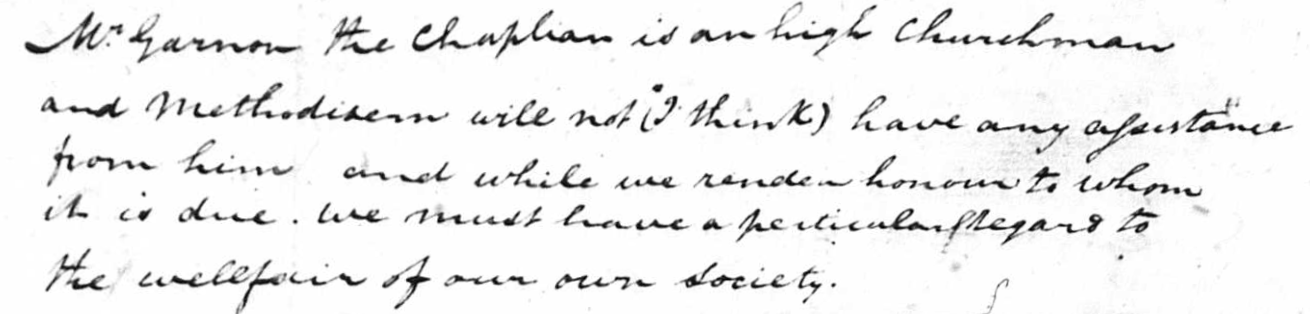 Mr Garnon the Chaplian is an high Churchman
and Methodisem will not (I think) have any assistance
from him and while we render honour to whom
it is due. we must have a perticular regard to
the wellfair of our own society.